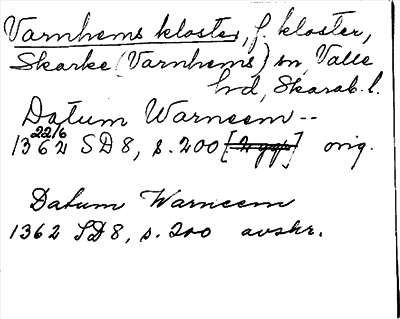 Varnhems kloster, f. kloster,
Skarke (Varnhems) sn, Valle
hd, Skarab. l.
Datum Warneem --
22/6
1362 SD 8, s. 200 [2 ggr] orig.
Datum Warneem
1362 SD 8, s. 200 avskr.